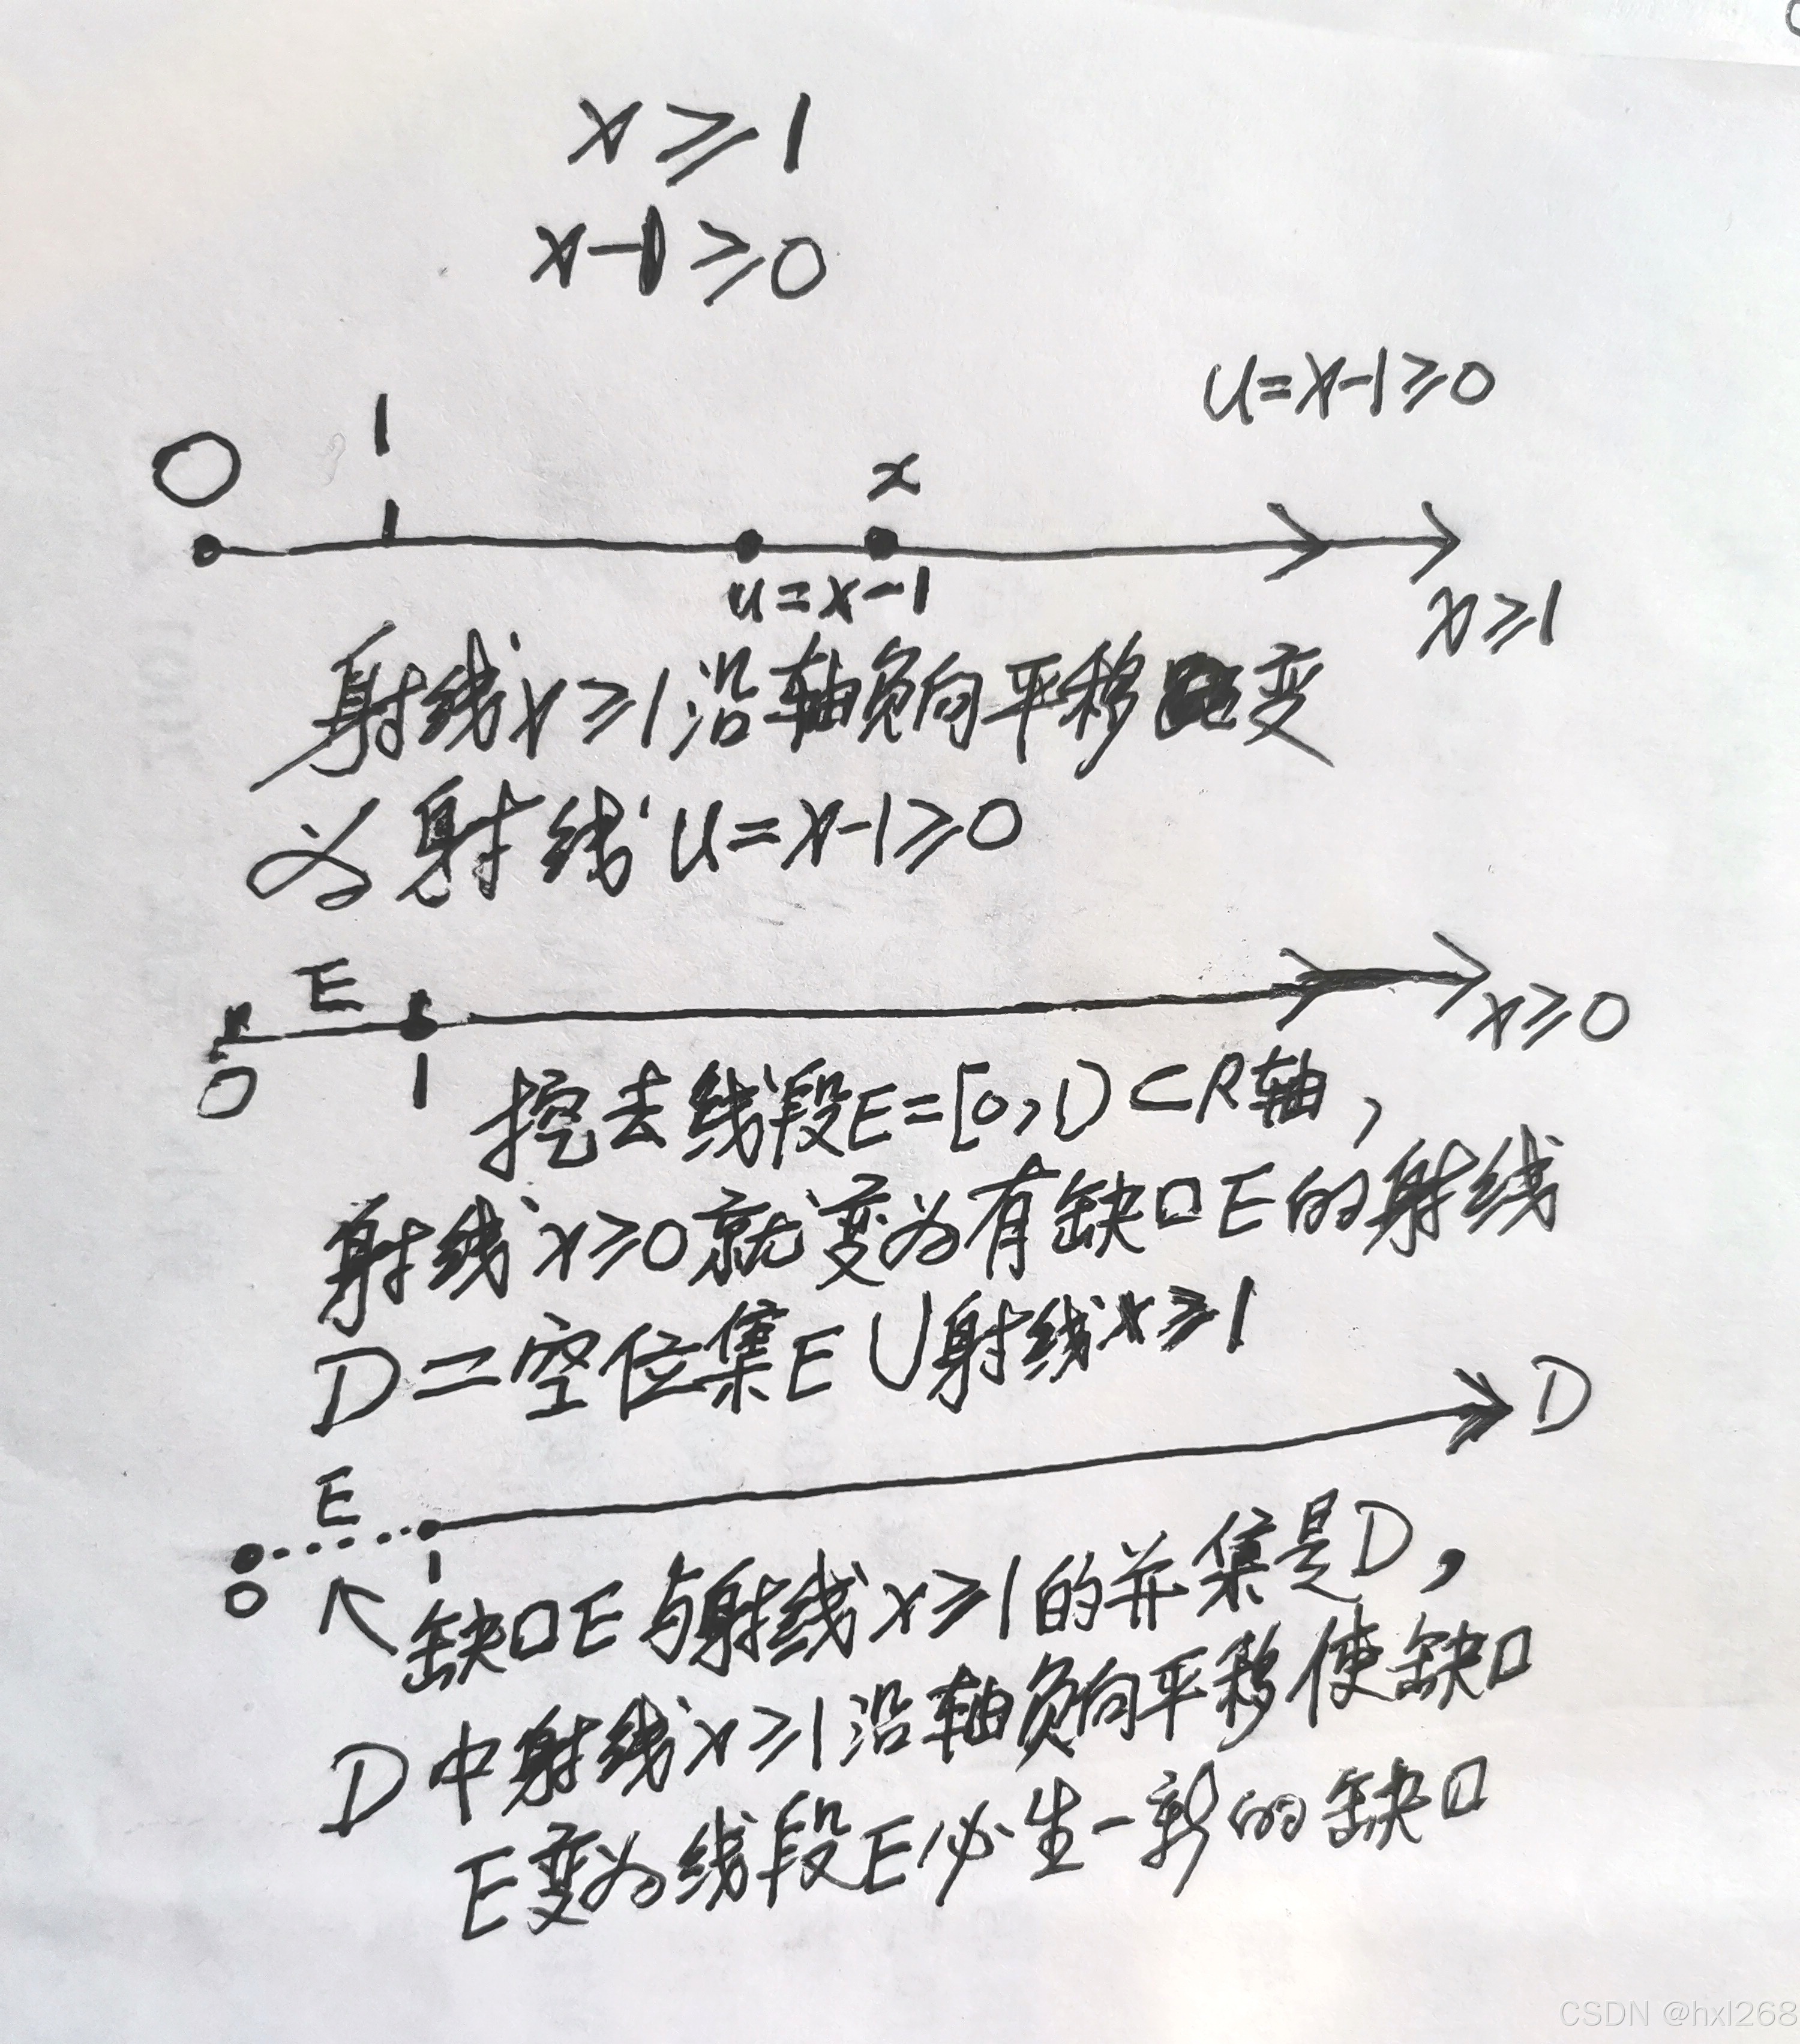 x≥1
x-1≥0
u=x-1≥0
0 1 x
u=x-1
x≥1
射线x≥1沿轴负向平移变
为射线u=x-1≥0
E
0 1 x≥0
挖去线段E=[0,1)⊂R轴,
射线x≥0就变为有缺口E的射线
D=空位集E∪射线x≥1
D
E
0 1
缺口E与射线x≥1的并集是D,
D中射线x≥1沿轴负向平移使缺口
E变为线段E必生一新的缺口
CSDN @hxl268